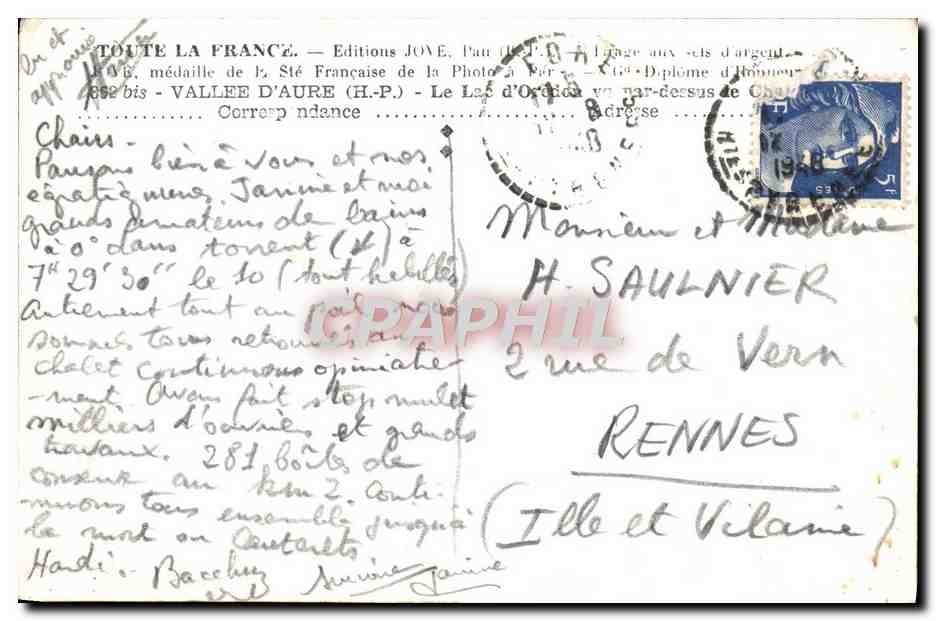 Vu et
approuvé
TOUTE LA FRANCE. — Editions JOVE, Pau (B.-P.) — Tirage aux sels d'argent
JOVE, médaille de la Sté Française de la Photo à Paris — Gd Diplôme d'Honneur
862 bis - VALLEE D'AURE (H.-P.) - Le Lac d'Orédon vu par-dessus de
Correspondance Adresse
1948
5F
Chairs -
Pensons bien à vous et nos
Janine et moi
grands amateurs de bains
à 0° dans torrent à
7H 29' 30" le 10 (tout habillés)
Autrement tout au poil, nous
sommes tous retrouvés au
chalet continuons opiniatre-
-ment. Avons fait stop mulet
milliers d'ouvriers et grands
travaux. 281 boîtes de
conserve au km 2. Conti-
nuons tous ensemble jusqu'à
la mort ou Cauterets
Hardi. Bacchus Janine
Monsieur et Madame
H. SAULNIER
2 rue de Vern
RENNES
(Ille et Vilaine)
CPAPHIL